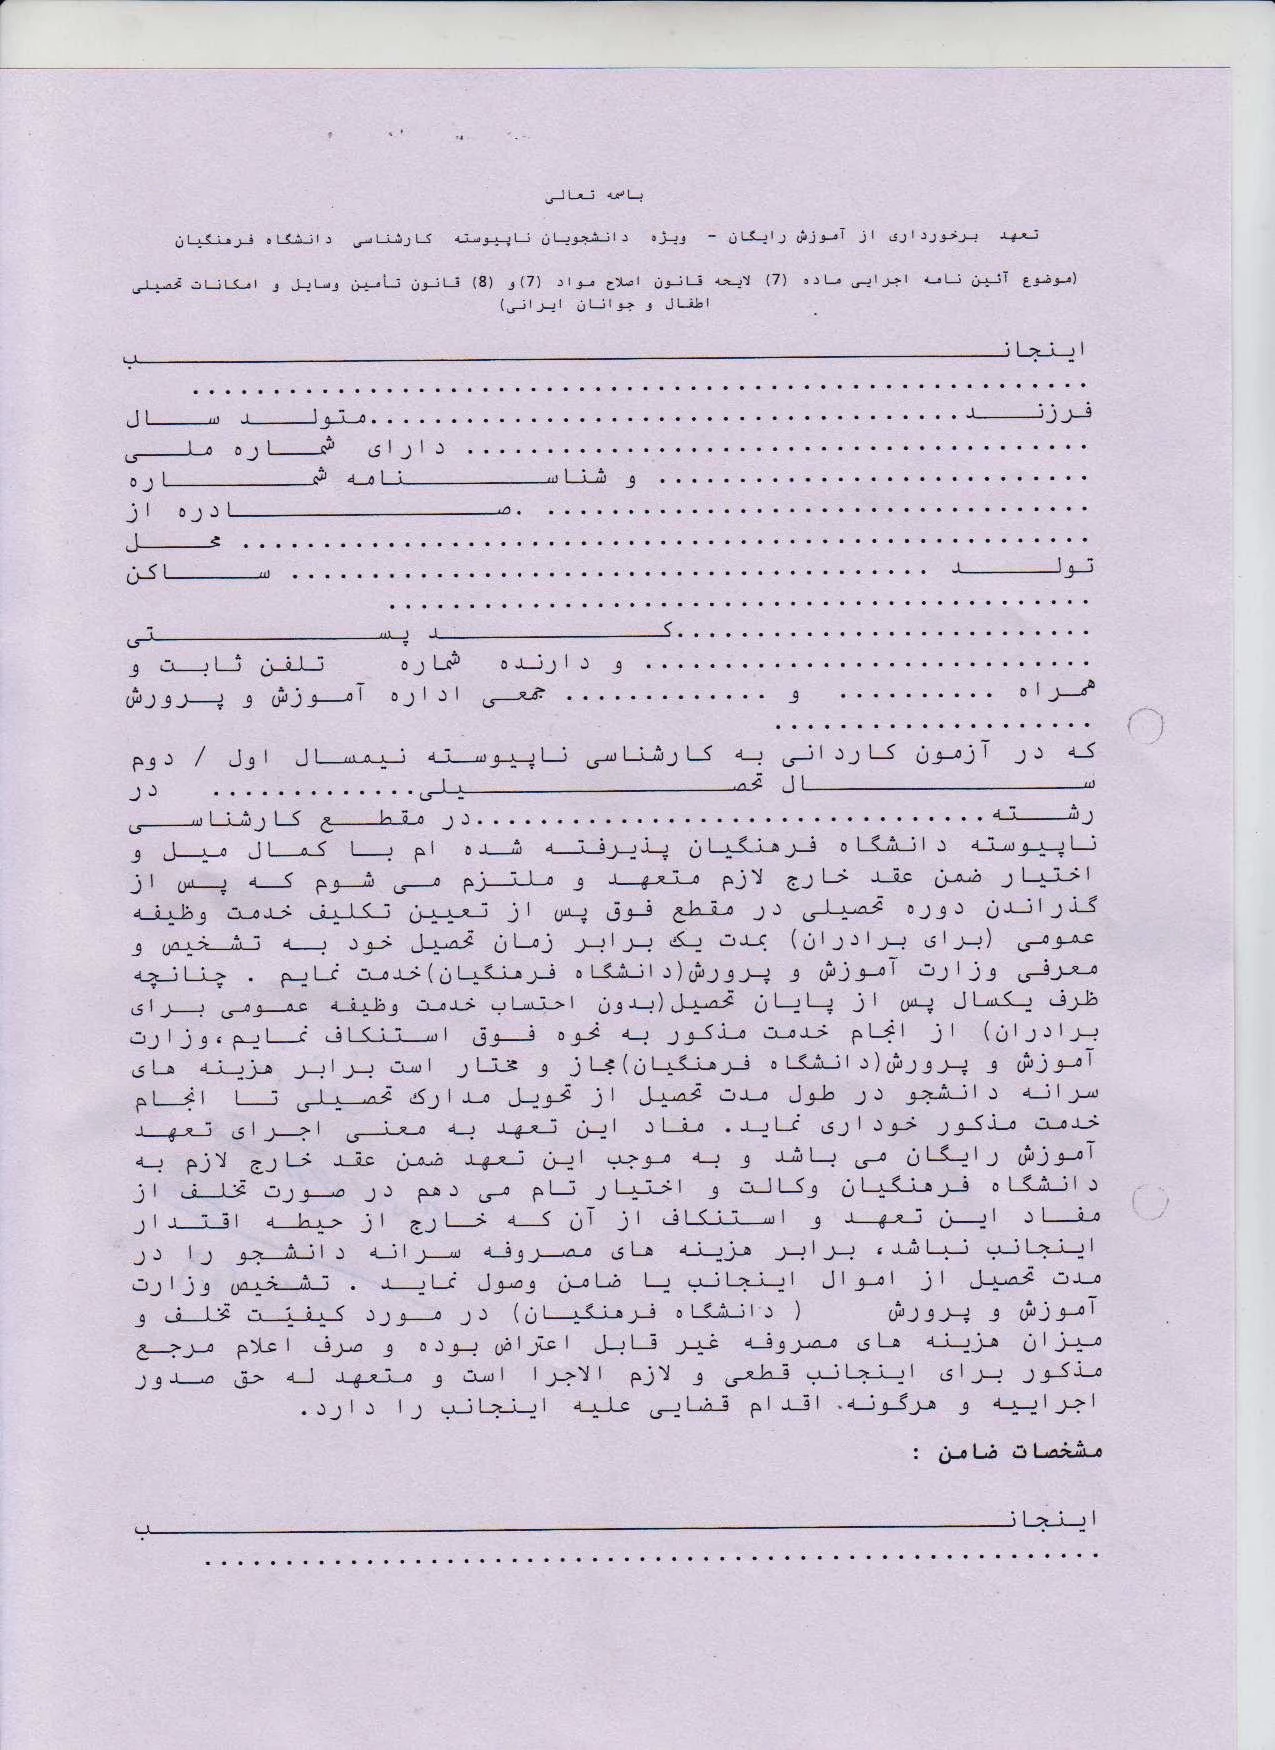 باسمه تعالی
تعهد برخورداری از آموزش رایگان - ویژه دانشجویان ناپیوسته کارشناسی دانشگاه فرهنگیان
(موضوع آئین نامه اجرایی ماده (7) لایحه قانون اصلاح مواد (7)و (8) قانون تأمین وسایل و امکانات تحصیلی
اطفال و جوانان ایرانی)
اینجانب
........................................................
فرزند......................................متولد سال
....................................... دارای شماره ملی
........................... و شناسنامه شماره
.................................. .صادره از
..................................................... محل
تولد ........................................ ساکن
............................................
..........................کد پستی
............................ و دارنده شماره تلفن ثابت و
همراه .......... و ............. جمعی اداره آموزش و پرورش
....................
که در آزمون کاردانی به کارشناسی ناپیوسته نیمسال اول / دوم
سال تحصیلی............. در
رشته................................در مقطع کارشناسی
ناپیوسته دانشگاه فرهنگیان پذیرفته شده ام با کمال میل و
اختیار ضمن عقد خارج لازم متعهد و ملتزم می شوم که پس از
گذراندن دوره تحصیلی در مقطع فوق پس از تعیین تکلیف خدمت وظیفه
عمومی (برای برادران) بمدت یک برابر زمان تحصیل خود به تشخیص و
معرفی وزارت آموزش و پرورش(دانشگاه فرهنگیان)خدمت نمایم . چنانچه
ظرف یکسال پس از پایان تحصیل(بدون احتساب خدمت وظیفه عمومی برای
برادران) از انجام خدمت مذکور به نحوه فوق استنکاف نمایم،وزارت
آموزش و پرورش(دانشگاه فرهنگیان)مجاز و مختار است برابر هزینه های
سرانه دانشجو در طول مدت تحصیل از تحویل مدارک تحصیلی تا انجام
خدمت مذکور خودداری نماید. مفاد این تعهد به معنی اجرای تعهد
آموزش رایگان می باشد و به موجب این تعهد ضمن عقد خارج لازم به
دانشگاه فرهنگیان وکالت و اختیار تام می دهم در صورت تخلف از
مفاد این تعهد و استنکاف از آن که خارج از حیطه اقتدار
اینجانب نباشد، برابر هزینه های مصروفه سرانه دانشجو را در
مدت تحصیل از اموال اینجانب یا ضامن وصول نماید . تشخیص وزارت
آموزش و پرورش ( دانشگاه فرهنگیان) در مورد کیفیت تخلف و
میزان هزینه های مصروفه غیر قابل اعتراض بوده و صرف اعلام مرجع
مذکور برای اینجانب قطعی و لازم الاجرا است و متعهد له حق صدور
اجراییه و هرگونه اقدام قضایی علیه اینجانب را دارد.
مشخصات ضامن :
اینجانب
........................................................